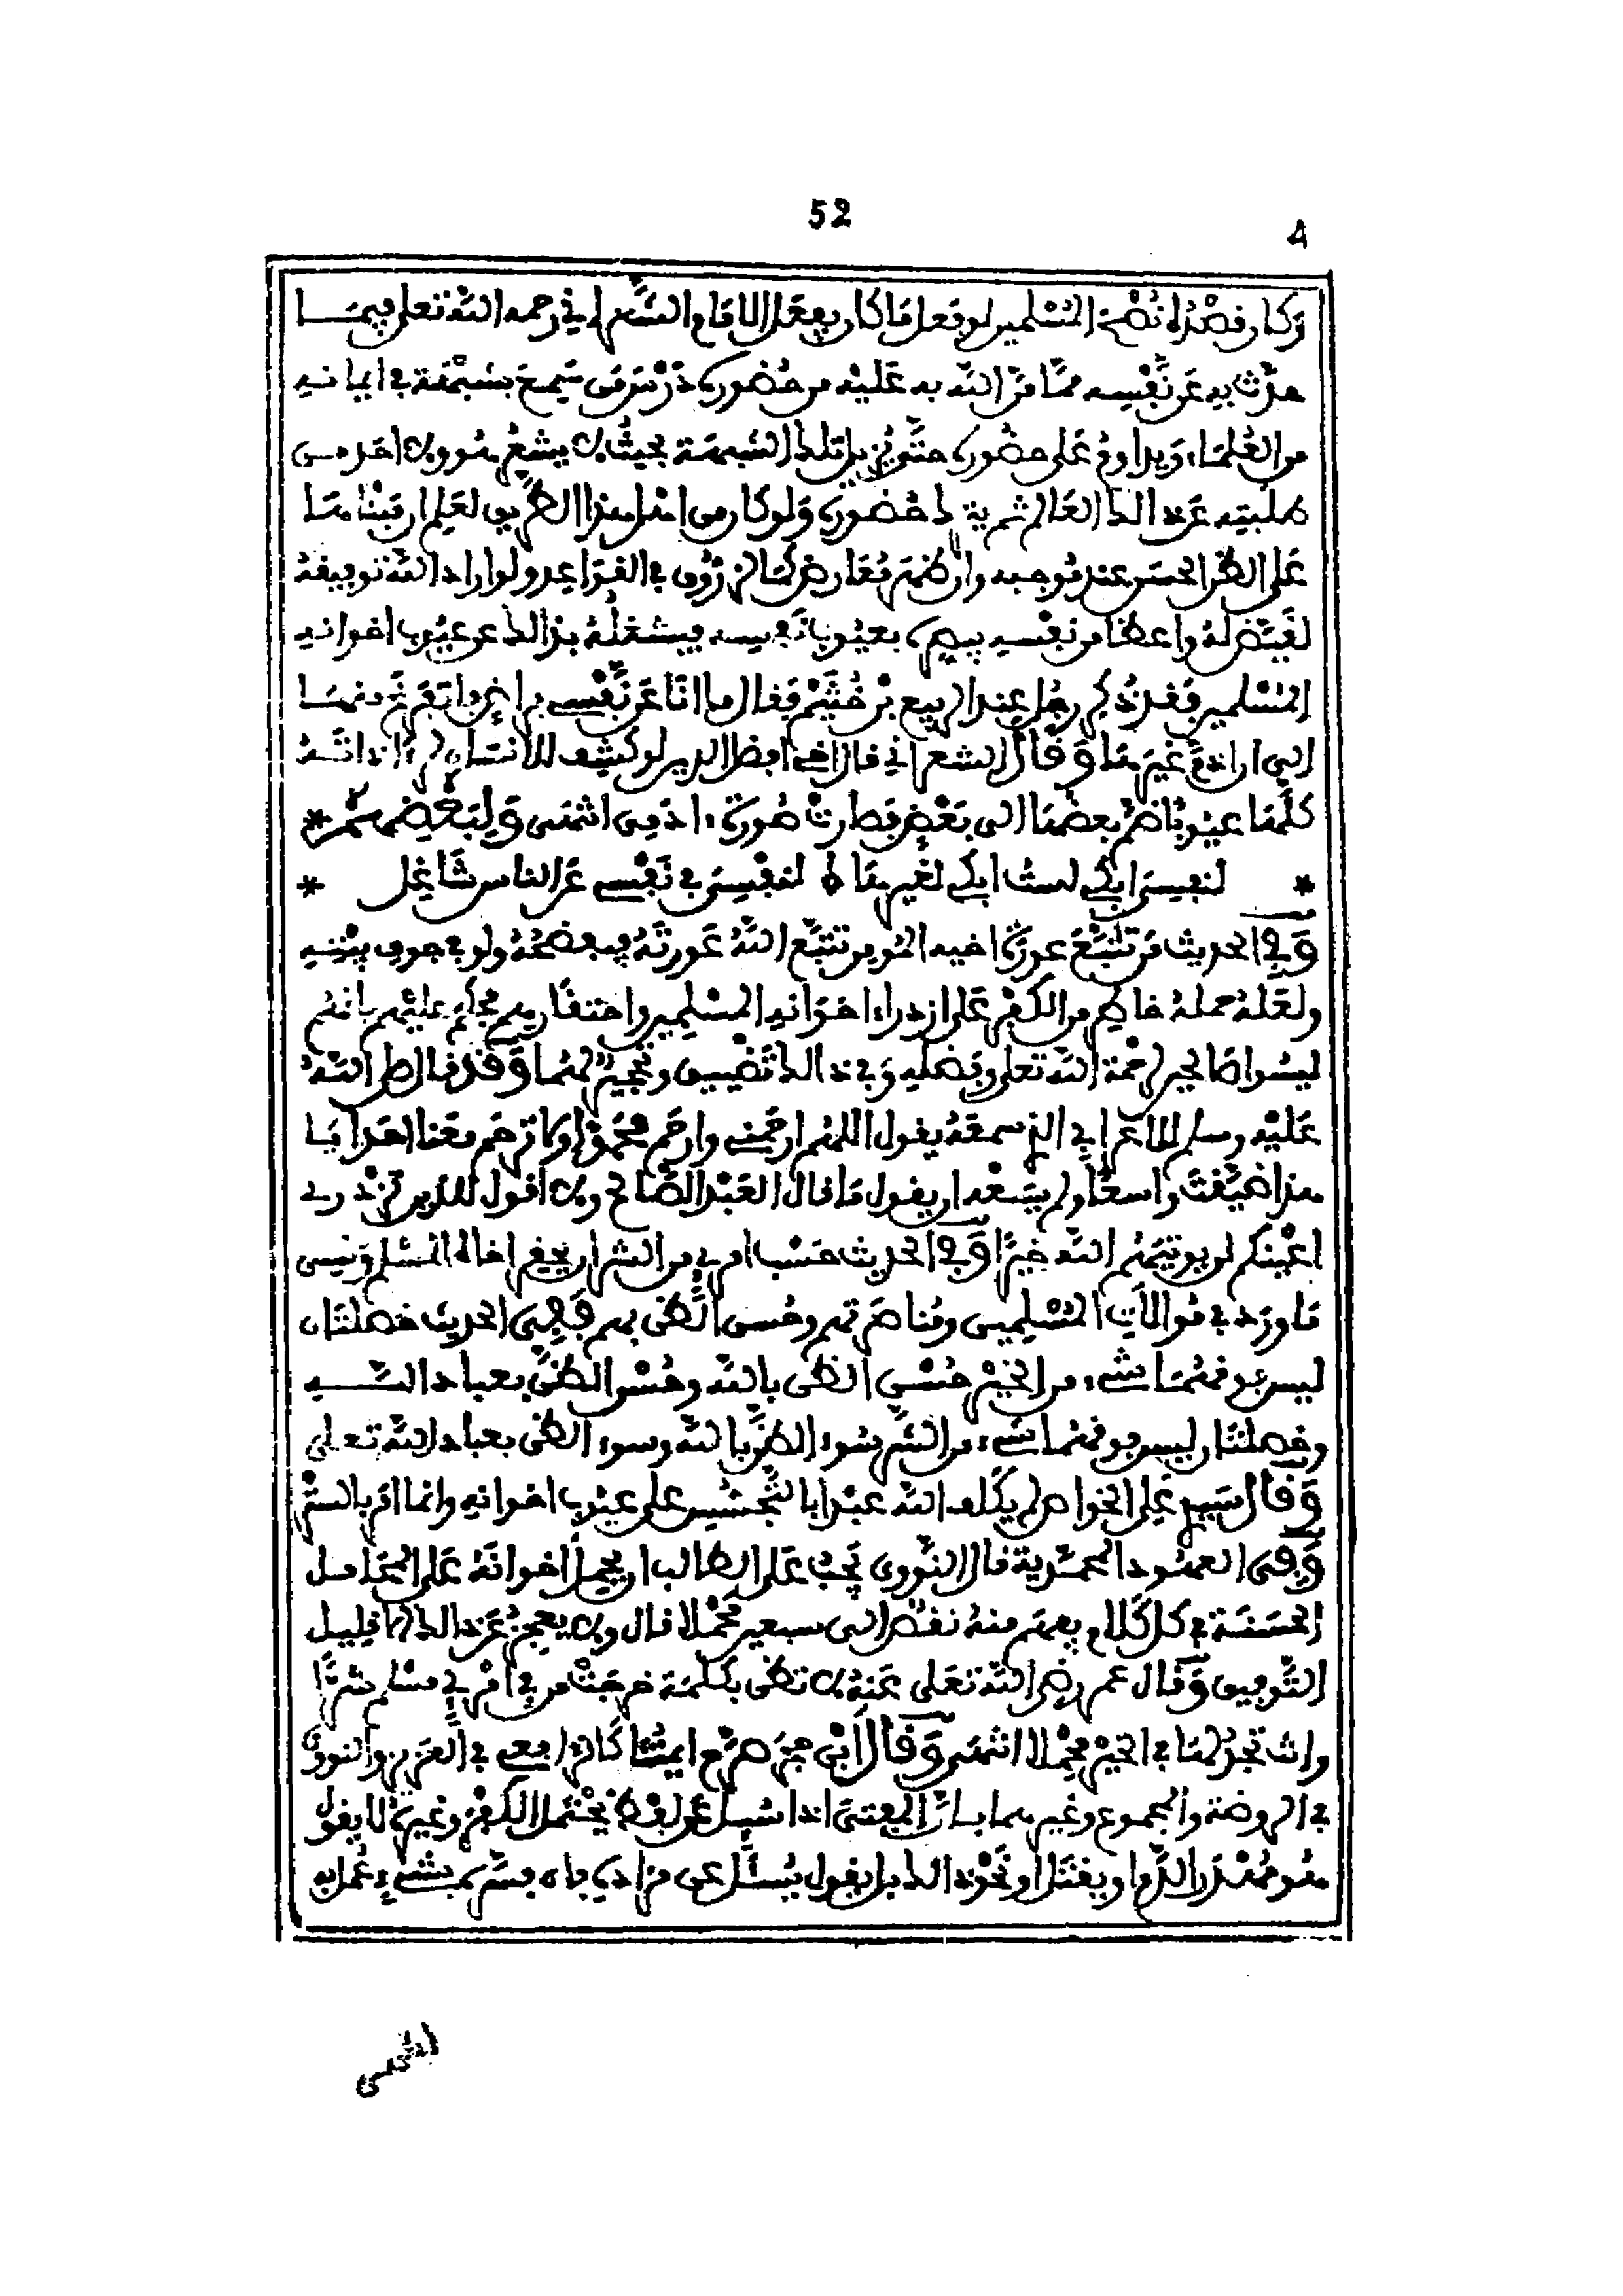 52
4
وكان قصده نصح المسلمين لو فعل ما كان يفعل الامام الشعراني رحمه الله تعلى فيما
حدث به عن نفسه مما من الله به عليه من حضوره درس من سمع بشبهة في ايمانه
من العلماء ويداوم على حضوره حتى يزيل تلك الشبهة بحيث لا يشعر هو ولا احد من
طلبته عند ذالك العالم ثم حضوره ولو كان من اهل هذا الطريق لعلم ان مبناها
على الظن الحسن عند موجبه وان ظهر معارض كما زروق في القواعد ولو اراد الله توفيقه
لقيض له واعظا من نفسه يبصره بعيوب نفسه فيشغله بذالك عن عيوب اخوانه
المسلمين فقد ذكر رجل عند الربيع بن خثيم فقال ما انا عن نفسي براض فاتفرغ منها
الى ان اذم غيرها وقال الشعراني قال اخي افضل الدين لو كشف للانسان لراى ذاته
كلها عيوبا ضم بعضها الى بعض فصارت صورة ادمي انتهى ولبعضهم *
* لنفسي ابكي لست ابكي لغيرها لنفسي في نفسي عن الناس شاغل *
وفي الحديث من تتبع عورة اخيه المومن تتبع الله عورته فيفضحه ولو في جوف بيته
ولعله حمله خاطر من الكفر على ازدراء اخوانه المسلمين واحتقارهم فحكم عليهم بانهم
ليسوا صالحين لرحمة الله تعلى وفضله وفي ذالك تضييق وتحجير لهما وقد قال صلى الله
عليه وسلم للاعرابي الذي سمعه يقول اللهم ارحمني وارحم محمدا ولا ترحم معنا احدا يا
هذا ضيقت واسعا ولم يسعه ان يقول ما قال العبد الصالح ولا اقول للذين تزدري
اعينكم لن يوتيهم الله خيرا وفي الحديث حسب امرئ من الشر ان يحقر اخاه المسلم ونسي
ما ورد في موالات المسلمين ومناصرتهم وحسن الظن بهم ففي الحديث خصلتان
ليس فوقهما شيء من الخير حسن الظن بالله وحسن الظن بعباد الله
وخصلتان ليس فوقهما شيء من الشر سوء الظن بالله وسوء الظن بعباد الله تعلى
وقال سيدي علي الخواص لم يكلف الله عبدا بالتجسس على عيوب اخوانه وانما امر بالستر
وفي العهود المحمدية قال النووي يجب على الطالب ان يحمل اخوانه على المحامل
الحسنة في كل كلام يفهم منه نقص الى سبعين محملا قال ولا يعجز عن ذالك الا قليل
التوفيق وقال عمر رضي الله تعلى عنه لا تظن بكلمة خرجت من في امرئ مسلم شرا
وانت تجد لها في الخير محملا انتهى وقال ابن حجر صرح ايمتنا كالرافعي في العزيز والنووي
في الروضة والمجموع وغيرهما بان المفتى اذا سيل عن لفظ يحتمل الكفر وغيره لا يقول
هو مهدر الدم او يقتل او نحو ذالك بل يقول يسأل عن مراده فان فسره بشيء عمل به